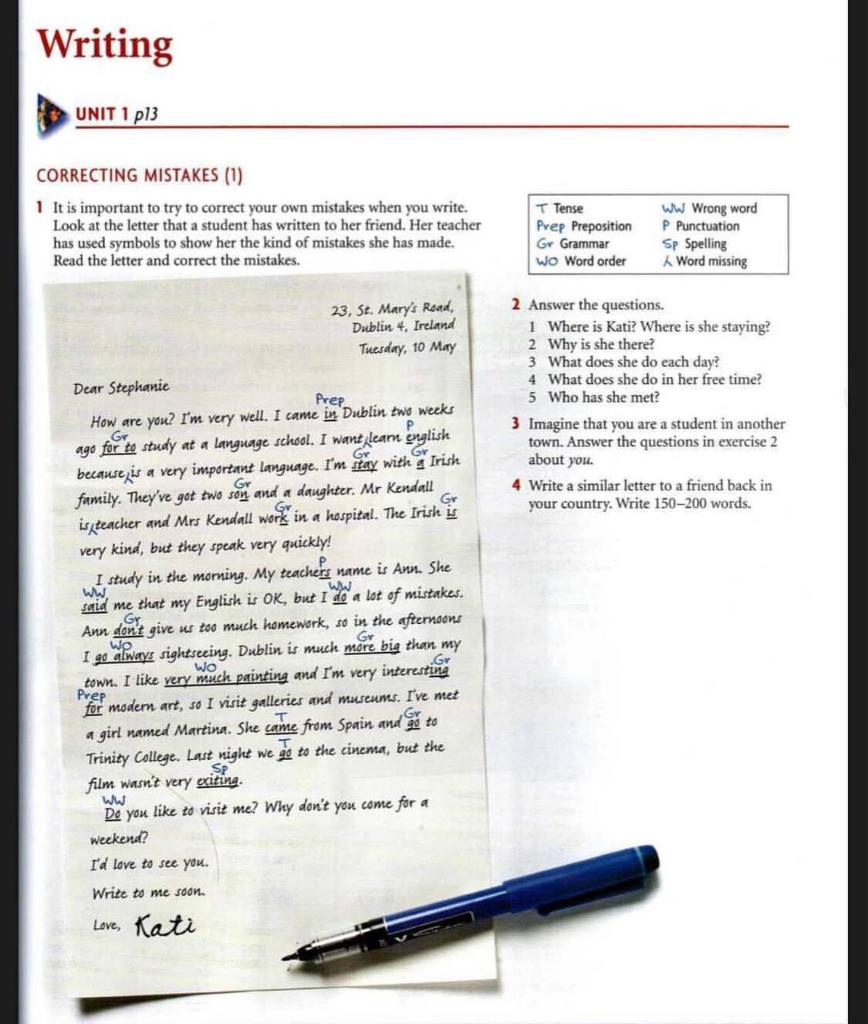 Writing
UNIT 1 p13
CORRECTING MISTAKES (1)
1 It is important to try to correct your own mistakes when you write.
Look at the letter that a student has written to her friend. Her teacher
has used symbols to show her the kind of mistakes she has made.
Read the letter and correct the mistakes.
T Tense
Prep Preposition
Gr Grammar
WO Word order
WW Wrong word
P Punctuation
Sp Spelling
⁁ Word missing
23, St. Mary's Road,
Dublin 4, Ireland
Tuesday, 10 May
Dear Stephanie
Prep
How are you? I'm very well. I came in Dublin two weeks
Gr P
ago for to study at a language school. I want ⁁ learn english
Gr Gr
because ⁁ is a very important language. I'm stay with a Irish
Gr
family. They've got two son and a daughter. Mr Kendall
Gr Gr
is ⁁ teacher and Mrs Kendall work in a hospital. The Irish is
very kind, but they speak very quickly!
P
I study in the morning. My teachers name is Ann. She
WW WW
said me that my English is OK, but I do a lot of mistakes.
Gr
Ann don't give us too much homework, so in the afternoons
WO Gr
I go always sightseeing. Dublin is much more big than my
WO Gr
town. I like very much painting and I'm very interesting
Prep
for modern art, so I visit galleries and museums. I've met
T Gr
a girl named Martina. She came from Spain and go to
T
Trinity College. Last night we go to the cinema, but the
Sp
film wasn't very exiting.
WW
Do you like to visit me? Why don't you come for a
weekend?
I'd love to see you.
Write to me soon.
Love, Kati
2 Answer the questions.
1 Where is Kati? Where is she staying?
2 Why is she there?
3 What does she do each day?
4 What does she do in her free time?
5 Who has she met?
3 Imagine that you are a student in another
town. Answer the questions in exercise 2
about you.
4 Write a similar letter to a friend back in
your country. Write 150–200 words.